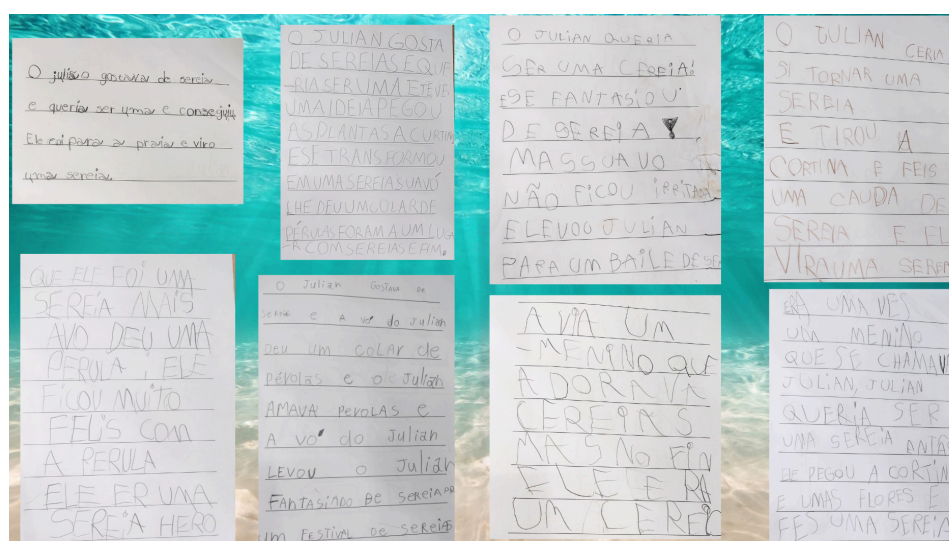 O julião gostava de sereia
e queria ser uma e conseguiu
Ele foi para a praia e viro
uma sereia.
O JULIAN GOSTA
DE SEREIAS E QUE
RIA SER UMA E TEVE
UMA IDEIA PEGOU
AS PLANTAS A CURTINA
E SE TRANSFORMOU
EM UMA SEREIA SUA VÓ
LHE DEU UM COLAR DE
PÉRULAS FORAM A UM LUGA
R COM SEREIAS E FIM.
O JULIAN QUERIA
SER UMA CEREIA:
ESE FANTASIOU
DE SEREIA
MAS SUA VO
NÃO FICOU IRRITADA
ELEVOU JULIAN
PARA UM BAILE DE SE
O JULIAN CERIA
SI TORNAR UMA
SEREIA
E TIROU A
CORTINA E FEIS
UMA CAUDA DE
SEREIA E EL
VIRAUMA SEREIA
QUE ELE FOI UMA
SEREIA MAIS
AVO DEU UMA
PERULA, ELE
FICOU MUITO
FELIS COM
A PERULA
ELE ER UMA
SEREIA HERO
O Julian Gostava de
sereia e A vó do Julian
Deu um coLar de
pérolas e o Julian
AMAVA Perolas e
A vó do Julian
LEVOU o Julian
FANTASINDO DE sereia PR
um FESTIVAL DE seReiAS
AVIA UM
MENINO QUE
ADORAVA
CEREIAS
MAS NO FIN
ELE ERA
UM CEREIC
ERA UMA VES
UM MENINO
QUE SE CHAMAVA
JULIAN, JULIAN
QUERIA SER
UMA SEREIA
ELE PEGOU A CORTIN
E UMAS FLORES E
FES UMA SEREIA